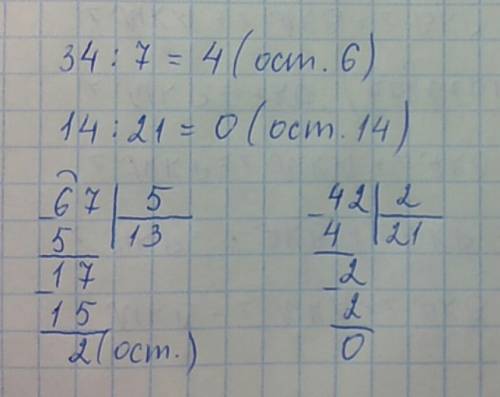 34 : 7 = 4 (ост. 6)
14 : 21 = 0 (ост. 14)
67 | 5
5 | 13
17
15
2 (ост.)
42 | 2
4 | 21
2
2
0